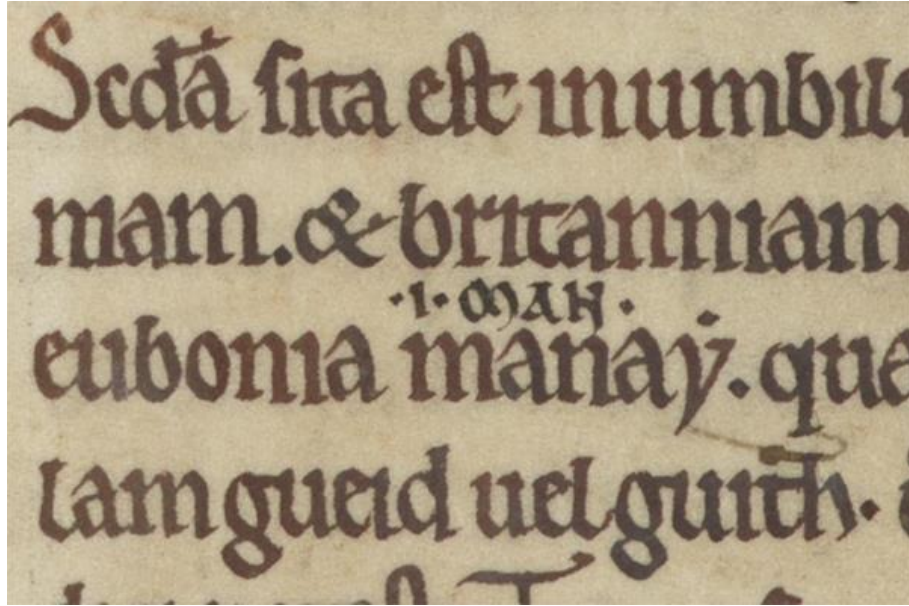 Scdā sita est inumbili
niam. & britanniam
·i· MAN ·
eubonia manaẏ. qua
tam gueid uel guith.